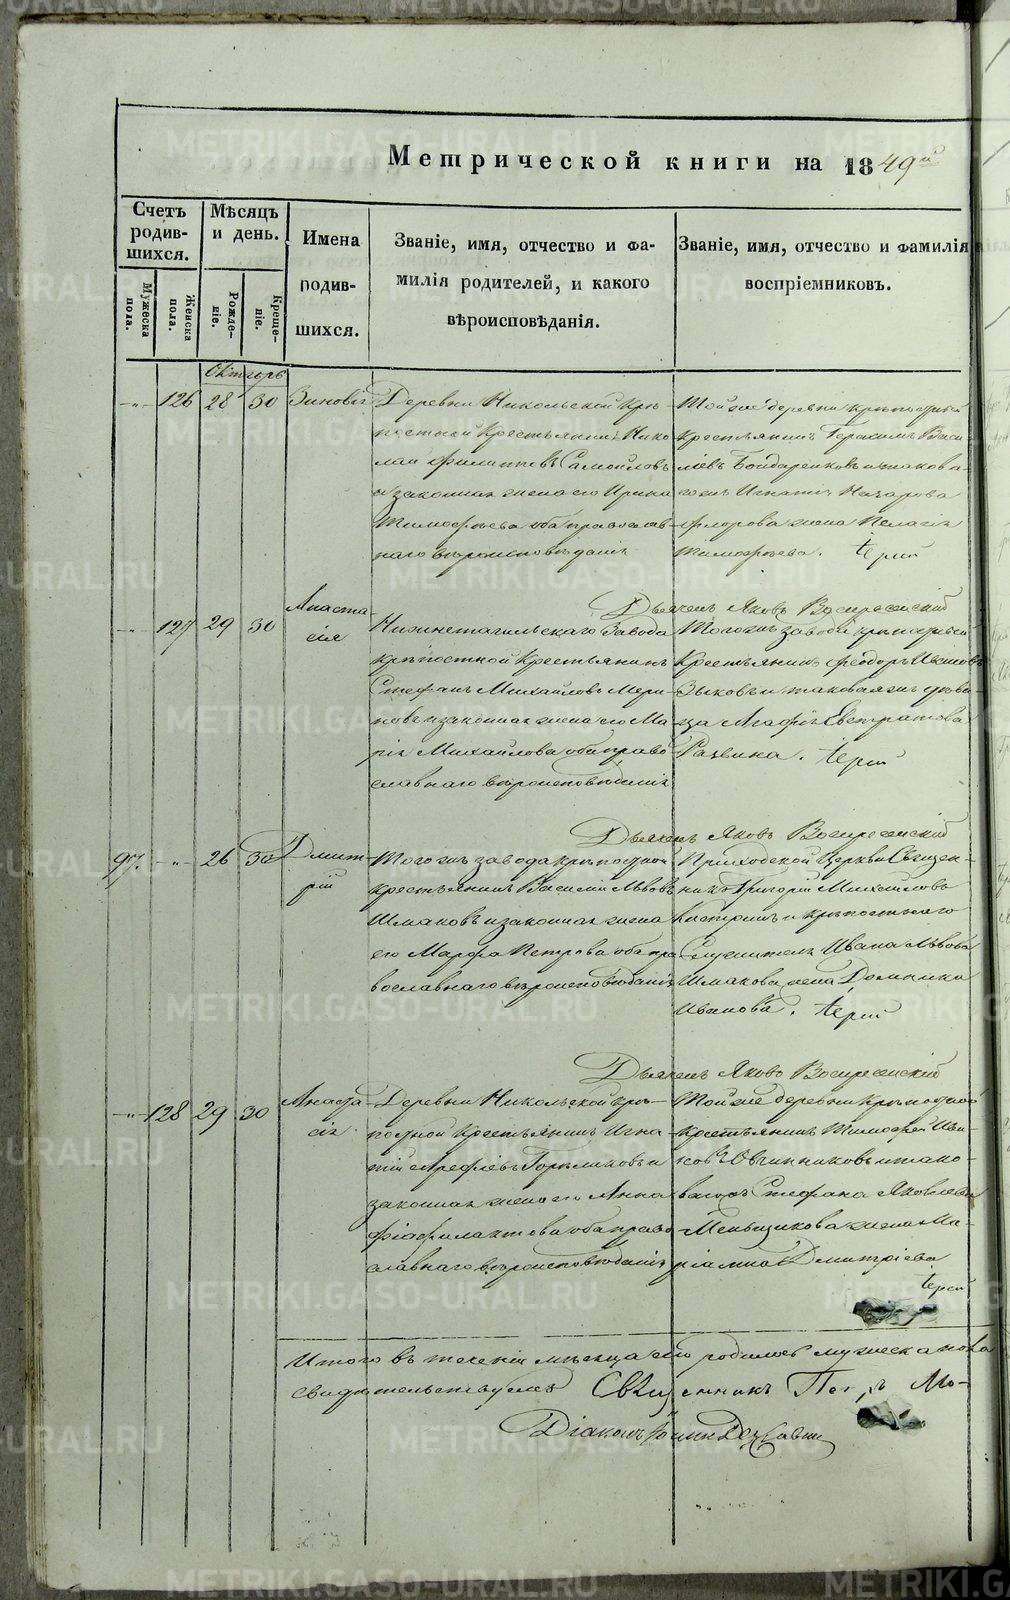 Метрической книги на 1849й
Счетъ родив-шихся.
Мужеска пола.
Женска пола.
Мѣсяцъ и день.
Рожде-ніе.
Креще-ніе.
Имена родив-шихся.
Званіе, имя, отчество и фа-
милія родителей, и какого
вѣроисповѣданія.
Званіе, имя, отчество и фамилія
воспріемниковъ.
Октябрь
126 28 30 Зиновія
Деревни Никольской крѣ-
постной крестьянинъ Нико-
лай Филиповъ Самойловъ
и законная жена его Ирина
Тимофѣева оба православ-
наго вѣроисповѣданія
Той же деревни крѣпостной
крестьянинъ Герасимъ Васи-
ліевъ Бондаренковъ и такова-
гожъ Игнатія Назарова
Флорова жена Пелагія
Тимофѣева.
Дьяконъ Яковъ Воскресенскій
127 29 30 Анаста-
сія
Нижнетагильскаго Завода
крѣпостной крестьянинъ
Стефанъ Михайловъ
и законная жена его Ма-
рія Михайлова оба право-
славнаго вѣроисповѣданія
Тогожъ завода крѣпостной
крестьянинъ Феодоръ Ивановъ
Зыковъ и таковаяжъ дѣви-
ца Агафія Евстратова
Дьяконъ Яковъ Воскресенскій
97. 26 30 Дмит-
рій
Тогожъ завода крѣпостной
крестьянинъ Василій Львовъ
Шмаковъ и законная жена
его Марфа Петрова оба пра-
вославнаго вѣроисповѣданія
Приходской Церкви Священ-
никъ Григорій Михайловъ
и крѣпостнаго
Служителя Ивана Львова
Шмакова жена Домника
Иванова.
Дьяконъ Яковъ Воскресенскій
128 29 30 Анаста-
сія
Деревни Никольской крѣ-
постной крестьянинъ Игна-
тій Арефіевъ и
законная жена его Анна
Феофилактова оба право-
славнаго вѣроисповѣданія
Той же деревни крѣпостной
крестьянинъ Тимофей Ива-
новъ Овчинниковъ и тако-
вагожъ Стефана Яковлева
Меньщикова жена Ма-
ріамна Дмитріева
Итого въ теченіи мѣсяца сего родилось мужеска пола
Свидѣтельствуемъ Священникъ Петръ
Діаконъ Іоаннъ
METRIKI.GASO-URAL.RU